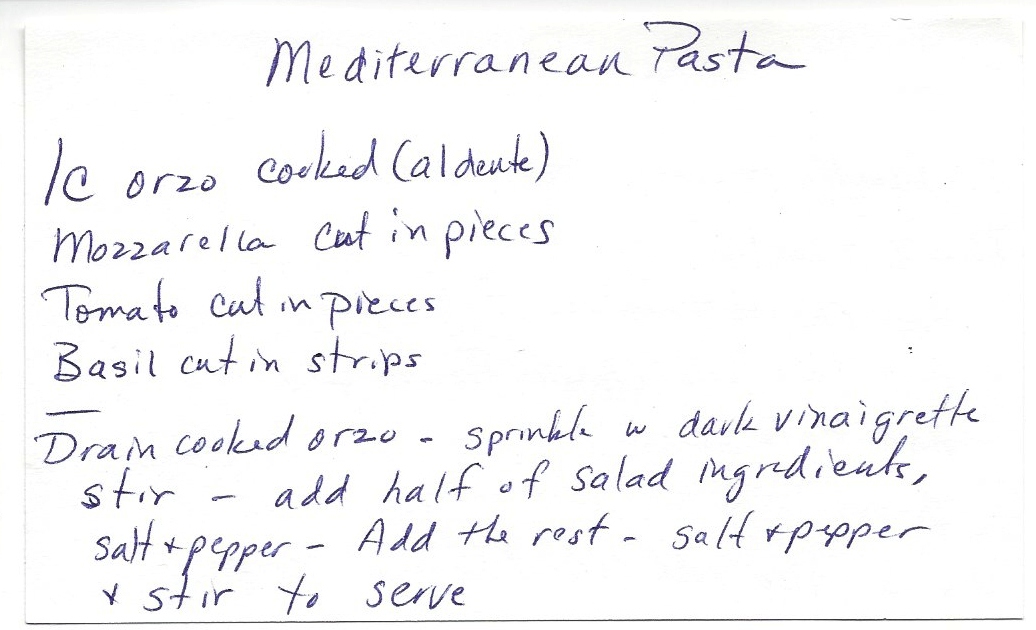 Mediterranean Pasta
1C orzo cooked (al dente)
Mozzarella cut in pieces
Tomato cut in pieces
Basil cut in strips
Drain cooked orzo - sprinkle w dark vinaigrette
stir - add half of salad ingredients,
salt + pepper - Add the rest - salt + pepper
+ stir to serve